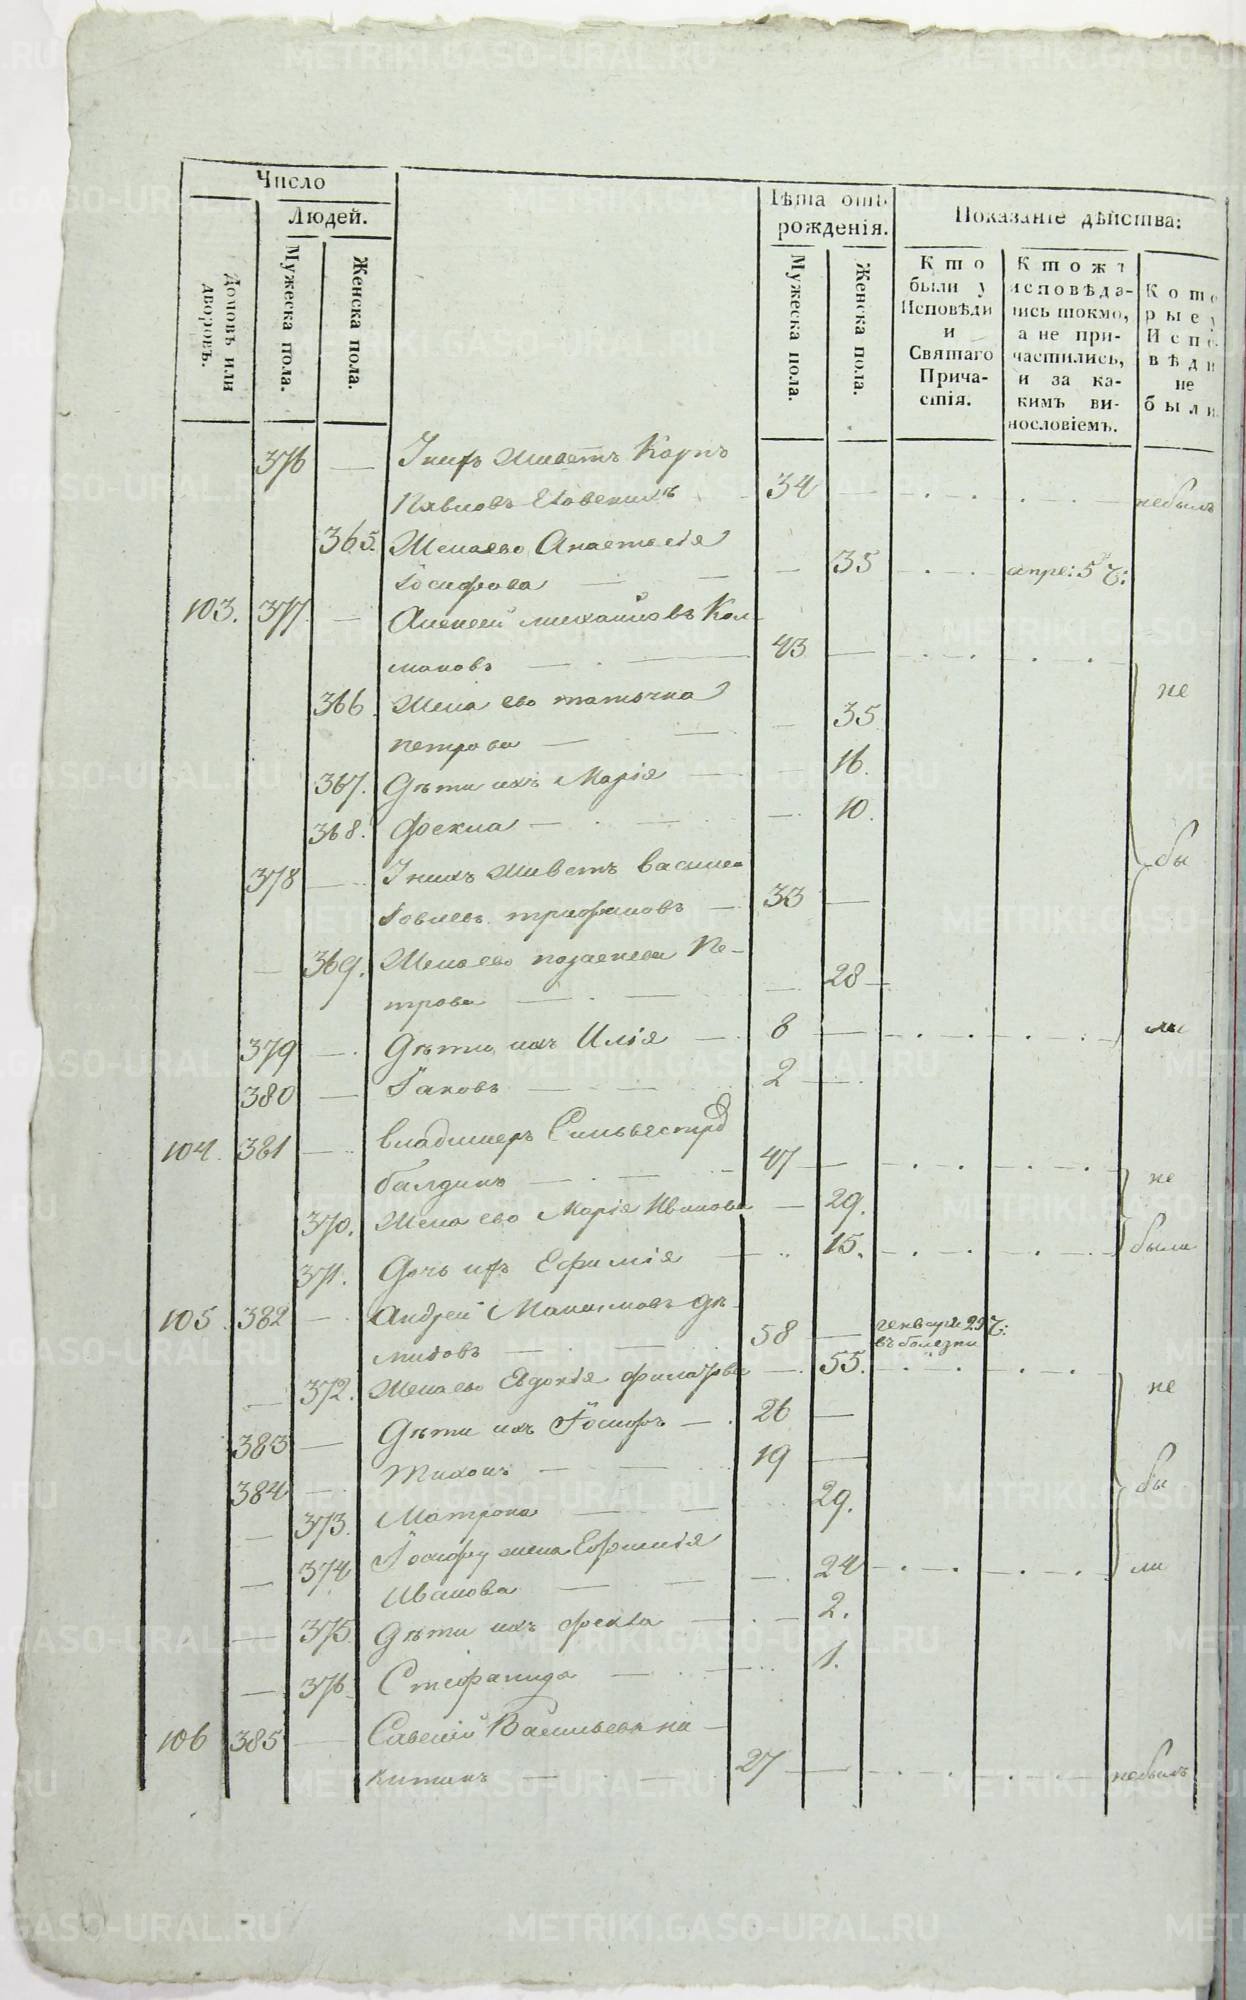 Число
Людей.
Домовъ или дворовъ.
Мужеска пола.
Женска пола.
Лѣта отъ рожденія.
Мужеска пола.
Женска пола.
Показаніе дѣйства:
Кто были у Исповѣди и Святаго Причастія.
Ктожъ исповѣдались токмо, а не причастились, и за какимъ винословіемъ.
Которые у Исповѣди не были
376 — У нихъ живетъ Карпъ
Павловъ 34 — небылъ
365. Жена ево Анастасія
Іосифова — 35 апре: 5 ч:
103. 377 — Алексей михайловъ Кол-
маковъ — 43 —
366. Жена ево татьяна
петрова — 35 не
367. Дѣти ихъ Марія — 16.
368. Фекла — 10.
378 — У нихъ живетъ василей бы
Іовлевъ трифановъ — 33 —
— 369. Жена ево Пе-
трова — 28 —
379 — Дѣти ихъ Илія — 8 — ли
380 — Іаковъ — 2 —
104. 381 — владимеръ Сильвестро
балдинъ — 47 — не
370. Жена ево Марія Иванова — 29.
371. Дочь ихъ Ефимія — 15. были
105. 382 — Андрей Максимовъ де-
мидовъ — 58 — генваря 29 ч:
въ болезни
— 372. Жена ево Евдокія — 55. не
383 — Дѣти ихъ Іосифъ — 26 —
384 — Тихонъ — 19 — бы
— 373. Матрона — 29.
— 374 Іосифу жена Ефимія
Иванова — 24 ли
— 375. Дѣти ихъ фекла — 2.
— 376. Стефанида — 1.
106 385 — Савелій Васильевъ ни-
китинъ — 27 — небылъ
METRIKI.GASO-URAL.RU